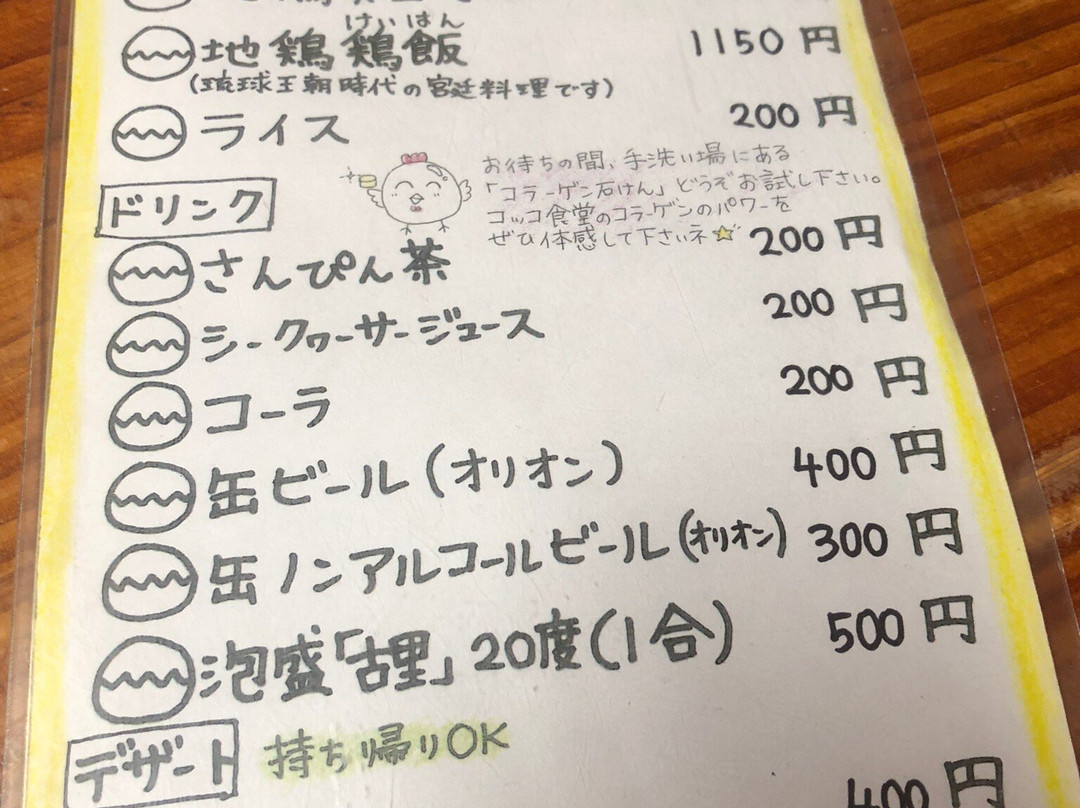 けいはん
地鶏鶏飯 1150円
(琉球王朝時代の宮廷料理です)
ライス 200円
お待ちの間、手洗い場にある
「コラーゲン石けん」どうぞお試し下さい。
コッコ食堂のコラーゲンのパワーを
ぜひ体感して下さいネ☆
ドリンク
さんぴん茶 200円
シークヮーサージュース 200円
コーラ 200円
缶ビール(オリオン) 400円
缶ノンアルコールビール(オリオン) 300円
泡盛「古里」20度(1合) 500円
デザート 持ち帰りOK
400円